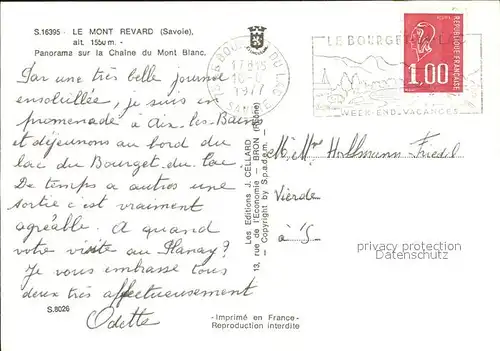 S.16395 - LE MONT REVARD (Savoie),
alt. 1550 m. -
Panorama sur la Chaîne du Mont Blanc.
Par une très belle journée
ensoleillée, je suis en
promenade à Aix-les-Bains
et déjeunons au bord du
lac du Bourget-du-Lac
De temps à autres une
sortie c'est vraiment
agréable. A quand
votre visite au Planay?
Je vous embrasse tous
deux très affectueusement
Odette
S.8026
Les Editions J. CELLARD
13, rue de l'Economie - BRON (Rhône)
- Copyright by S.p.a.d.e.m. -
-Imprimé en France-
Reproduction interdite
LE BOURGET DU LAC
17H15
1977
SAVOIE
LE BOURGET DU LAC
WEEK-END_VACANCES
1,00
REPUBLIQUE FRANÇAISE
M. Mme Holtzmann Friedel
à
privacy protection
Datenschutz